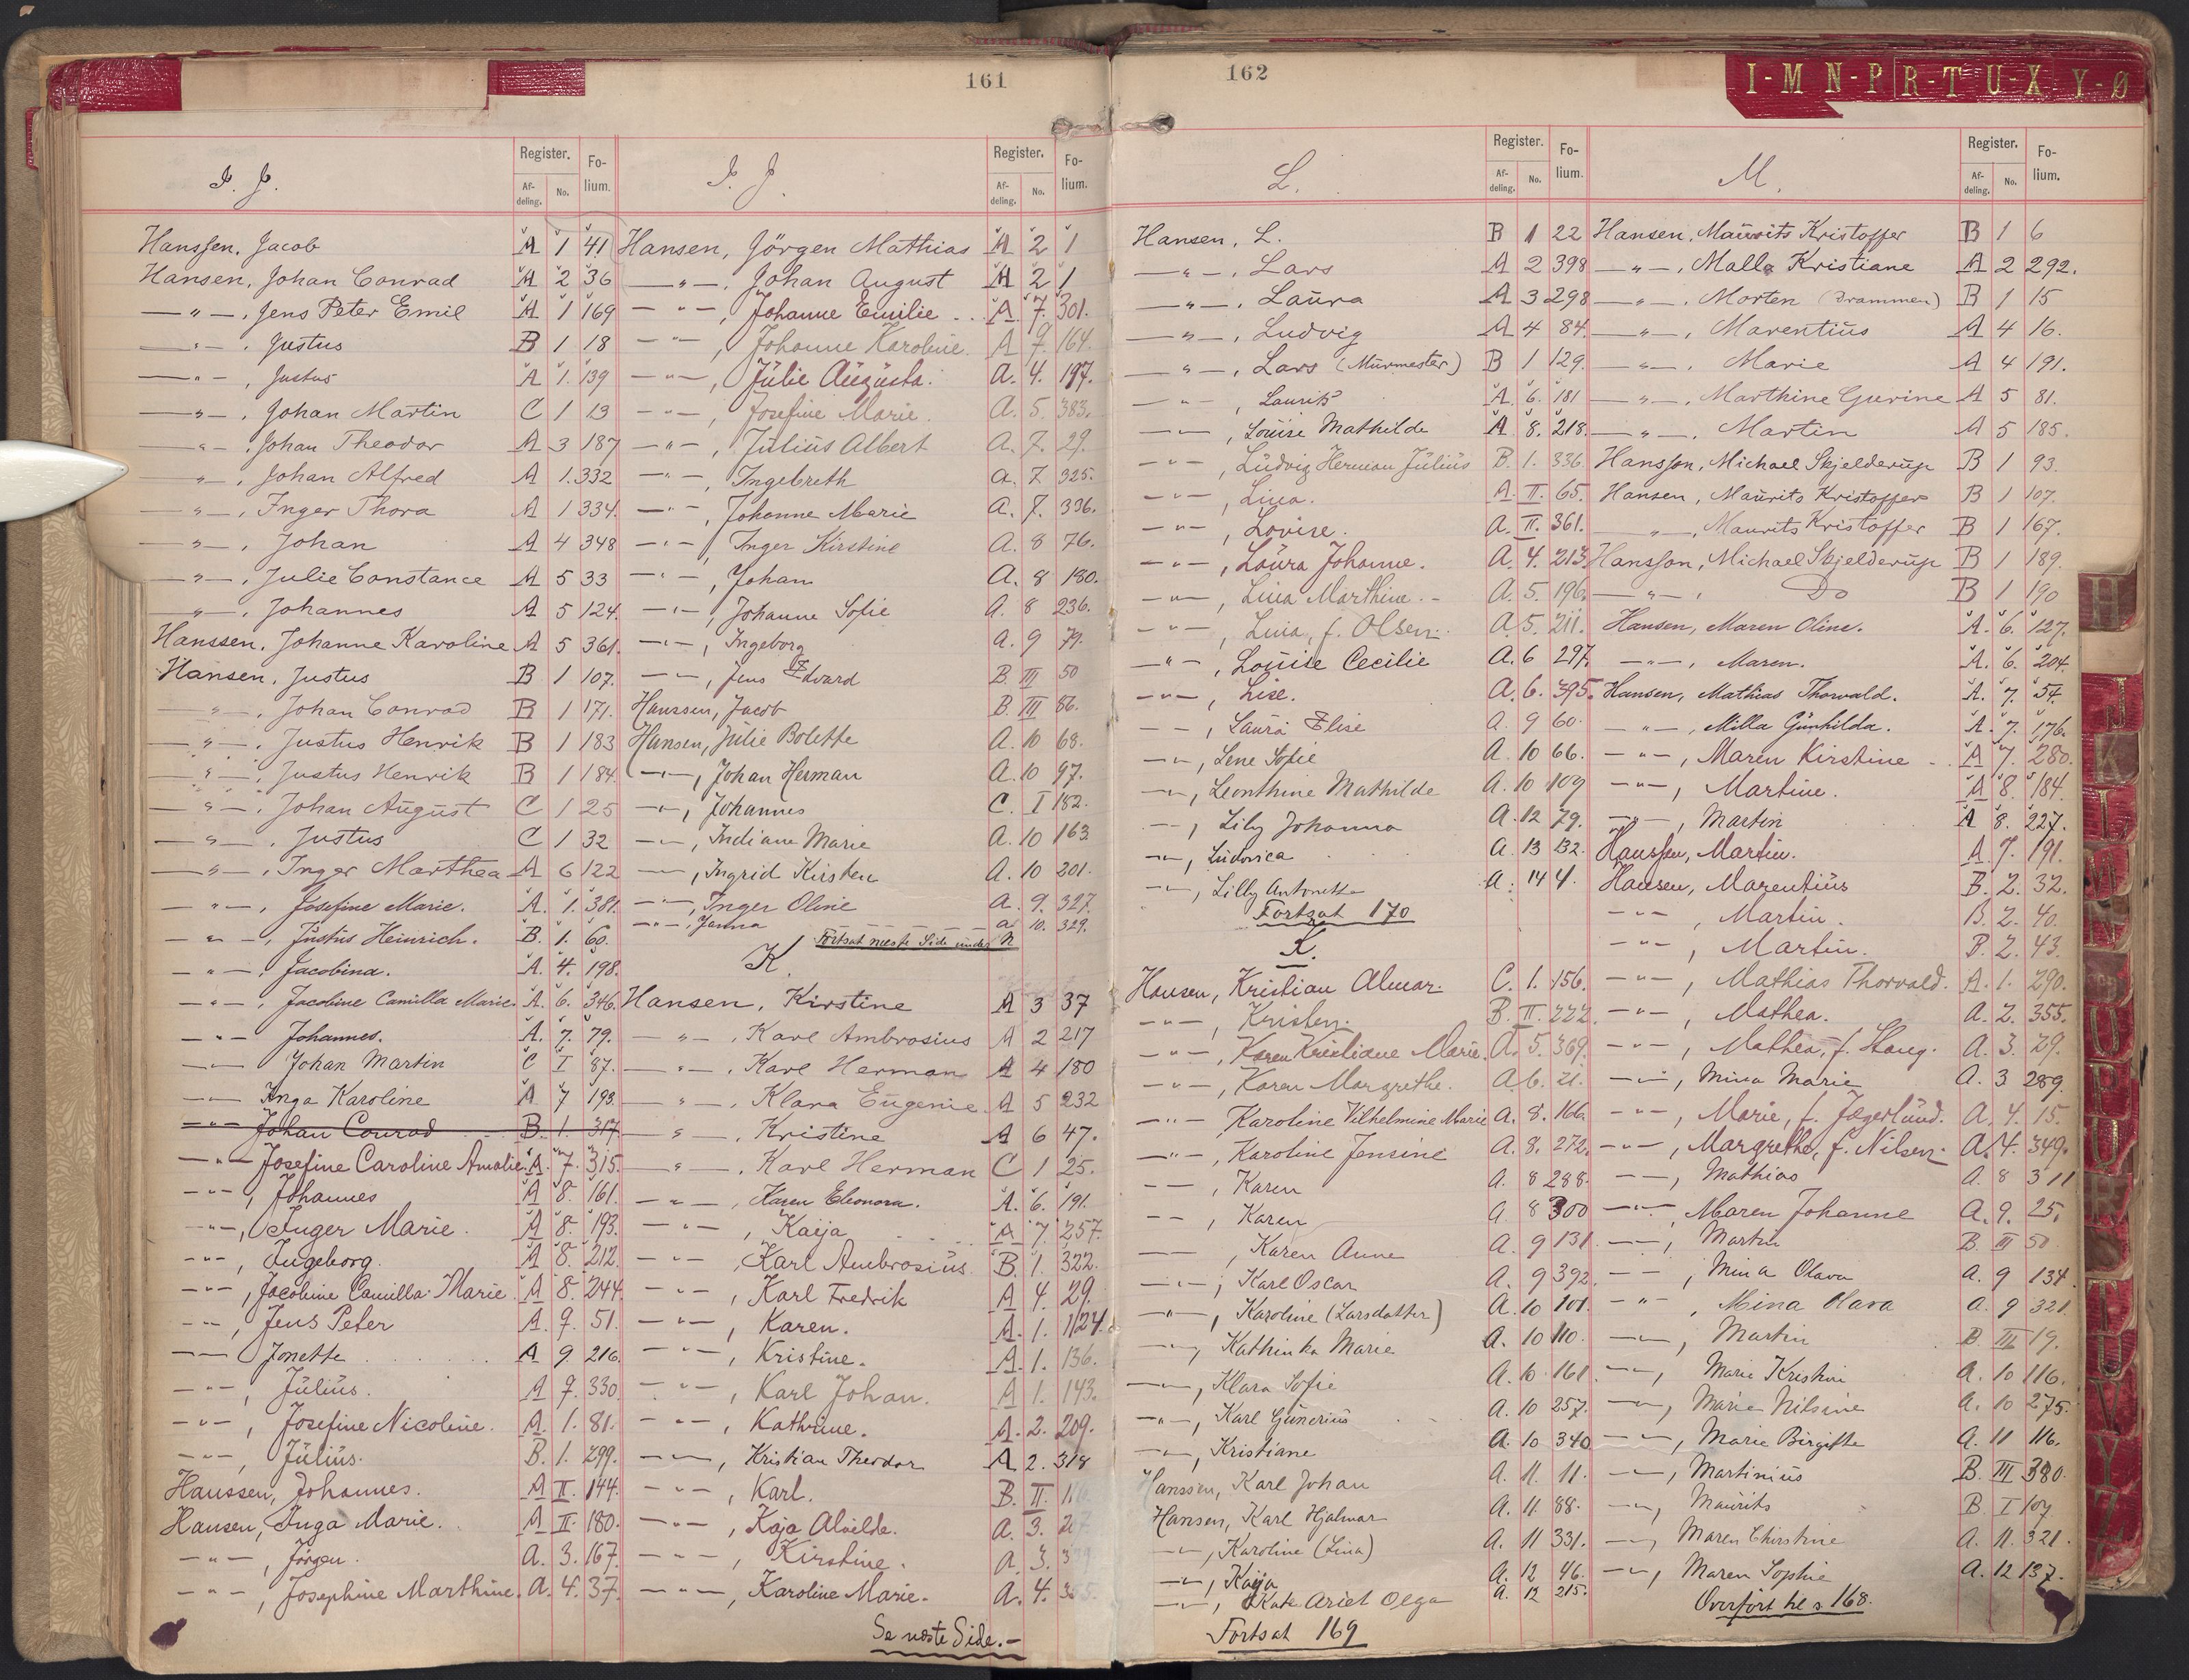 161
I. J.
Register.
Fo-
lium.
Af-
deling.
No.
Hanssen, Jacob A 1 41
Hansen, Johan Conrad A 2 36
—"—, Jens Peter Emil A 1 169
—"—, Justus B 1 18
—"—, Justus A 1. 139
—"—, Johan Martin C 1 13
—"—, Johan Theodor A 3 187
"—, Johan Alfred A 1. 332
—"—, Inger Thora A 1 334.
—"—, Johan A 4 348
—"—, Julie Constance A 5 33
"—, Johannes A 5 124.
Hanssen, Johanne Karoline A 5 361.
Hansen, Justus B 1 107.
—"—, Johan Conrad B 1 171.
—"—, Justus Henrik B 1 183
—"—, Justus Henrik B 1 184.
—"—, Johan August C 1 25
—"—, Justus C 1 32
—"—, Inger Marthea A 6 122
—"—, Josefine Marie. A. 1. 381.
—"—, Justus Heinrich. B. 1. 60.
—"—, Jacobina. A. 4. 198.
—"—, Jacobine Camilla Marie. A. 6. 346.
—"— Johannes. A. 7. 79.
—"— Johan Martin C I 87.
—"— Inga Karoline A 7 193.
—"— Johan Conrad B. 1. 317
—"— Josefine Caroline Amalie. A. 7. 315.
—"—, Johannes A 8. 161.
—"—, Inger Marie. A 8. 193.
—"—, Ingeborg. A 8. 212.
—"—, Jacobine Camilla Marie. A 8. 244.
—"—, Jens Peter A. 9. 51.
—"— Jonette A 9 216.
—"—, Julius. A 9. 330.
—"—, Josefine Nicoline. A. 1. 81.
—"—, Julius. B. 1. 299.
Hanssen, Johannes. A II. 144.
Hansen, Inga Marie. A II 180.
—"—, Jörgen. A. 3. 167.
—"—, Josephine Marthine. A. 4. 37.
I. J.
Register.
Fo-
lium.
Af-
deling.
No.
Hansen, Jörgen Mathias A 2 1
—"—, Johan August A 2 1
—"—, Johanne Emilie A. 7. 301.
—"—, Johanne Karoline. A 7. 164.
—"—, Julie Augusta. A. 4. 197.
—"—, Josefine Marie. A. 5. 383.
—"—, Julius Albert A. 7. 29.
—"—, Ingebreth A. 7 325.
—"—, Johanne Marie A. 7. 336.
—"—, Inger Kirstine A. 8 76.
—"—, Johan A. 8 180.
—"—, Johanne Sofie A. 8 236.
—"—, Ingeborg A. 9 79.
—"—, Jens Edvard B. III 50
Hanssen, Jacob B. III 86.
Hansen, Julie Bolette A. 10 68.
—"—, Johan Herman A. 10 97.
—"—, Johannes C. I 182.
—"—, Indiane Marie A. 10 163
—"—, Ingrid Kirsten A. 10 201.
—"—, Inger Oline A. 9. 327.
—"—, Janna A 10. 329.
Fortsat næste Side under N
K.
Hansen, Kirstine A 3 37
—"—, Karl Ambrosius A 2 217
—"—, Karl Herman A 4 180
—"—, Klara Eugenie A 5 232
—"—, Kristine A 6 47.
—"—, Karl Herman C 1 25.
—"—, Karen Eleonora. A. 6. 191.
—"—, Kaija A 7 257.
—"—, Karl Ambrosius B. 1. 322.
—"—, Karl Fredrik A 4. 29.
—"—, Karen. A. 1. 124.
—"—, Kristine. A. 1. 136.
—"—, Karl Johan. A 1. 143.
—"—, Kathrine. A. 2. 209.
—"—, Kristian Theodor A 2. 318
—"—, Karl. B. II.
—"—, Kaja Alvilde. A. 3.
—"—, Kirstine. A. 3.
—"—, Karoline Marie. A. 4.
Se næste Side.—
162
I-M N-P R-T U-X Y-Ø
L.
Register.
Fo-
lium.
Af-
deling.
No.
Hansen, L. B 1 22
—"—, Lars A 2 398
—"—, Laura A 3 298
—"—, Ludvig A 4 84.
—"—, Lars (Murmester) B 1 129.
—"—, Laurits A. 6. 181
—"—, Louise Mathilde A. 8. 218.
—"—, Ludvig Herman Julius B. 1. 336.
—"—, Lina. A. II. 65.
—"—, Lovise. A. II. 361.
—"—, Laura Johanne. A. 4. 213.
—"—, Lina Marthine. A. 5. 196.
—"—, Lina, f. Olsen. A. 5. 211.
—"—, Louise Cecilie A. 6 297.
—"—, Lise. A. 6. 395.
—"—, Laura Elise A. 9 60.
—"—, Lene Sofie A. 10 66.
—"—, Leonthine Mathilde A. 10 109
—"—, Lily Johanna A. 12 79.
—"—, Ludovica A. 13 132.
—"—, Lilly Antonette A. 14 4.
Fortsat 170
K.
Hansen, Kristian Almar. C. 1. 156.
—"—, Kristen. B. II. 222.
—"—, Karen Kristiane Marie. A. 5. 369.
—"—, Karen Margrethe. A. 6. 21.
—"— Karoline Vilhelmine Marie A. 8. 166.
—"—, Karoline Jensine A. 8. 272.
—"—, Karen A. 8 288.
—"—, Karen A 8 300
—"—, Karen Anne A. 9 131.
—"—, Karl Oscar A. 9 392.
—"—, Karoline (Larsdatter) A. 10 101.
—"—, Kathinka Marie A. 10 110.
—"—, Klara Sofie A. 10. 161.
—"—, Karl Gunerius A. 10 257.
—"—, Kristiane A. 10 340.
Hanssen, Karl Johan A. 11. 11.
Hansen, Karl Hjalmar A. 11. 88.
—"—, Karoline (Lina) A. 11 331.
—"—, Kaija A. 12 46.
—"—, Kate Ariel Olga A. 12 215.
Fortsat 169
M.
Register.
Fo-
lium.
Af-
deling.
No.
Hansen, Maurits Kristoffer B 1 6
—"—, Malla Kristiane A 2 292.
—"—, Morten (Drammen) B 1 15
—"—, Marentius A 4 16.
—"—, Marie A 4 191.
—"—, Marthine Gurine A 5 81.
—"—, Martin A 5 185.
Hansson, Michael Skjelderup B 1 93.
Hansen, Maurits Kristoffer B 1 107.
"—, Maurits Kristoffer B 1 167.
Hansson, Michael Skjelderup B 1 189.
—"—, Do B 1 190
Hansen, Maren Oline. A. 6. 127.
—"—, Maren. A. 6. 204.
Hansen, Mathias Thorvald. A. 7. 54.
—"—, Milla Gunhilda. A. 7. 176.
—"—, Maren Kirstine A 7. 280.
—"—, Martine. A 8. 184.
—"—, Martin A 8. 227.
Hanssen, Martin. A. 7. 191.
Hansen, Marentius B. 2. 32.
—"—, Martin. B. 2. 40.
—"—, Martin. B. 2. 43.
—"—, Mathias Thorvald. A. 1. 290.
—"—, Mathea. A. 2. 355.
—"—, Mathea, f. Stang. A. 3. 29.
—"—, Mina Marie A. 3 289.
—"—, Marie, f. Jægerlund. A. 4. 15.
—"—, Margrethe, f. Nilsen. A. 4. 349.
—"—, Mathias A. 8 311
—"—, Maren Johanne A. 9. 25.
—"—, Martin B. III 50
—"—, Mina Olava A. 9 134.
—"—, Mina Olava A. 9 321.
—"—, Martin B III 19.
—"—, Marie Kristine A. 10 116.
—"—, Marie Nilsine A. 10 275.
—"—, Marie Birgitte A. 11 116.
—"—, Martinius B. III 380.
—"—, Maurits B I 107
—"—, Maren Christine A. 11. 321.
—"—, Maren Sophie A. 12 137.
Overført til s 168.
H
J
K
L
M
N
O
P
U
R
T
U
V
Y
Z